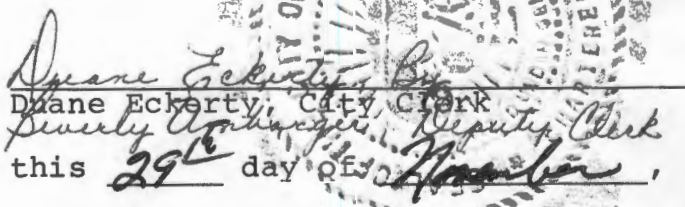 Duane Eckerty, By
Duane Eckerty, City Clerk
Beverly Deputy Clerk
this 29th day of November,
CITY OF